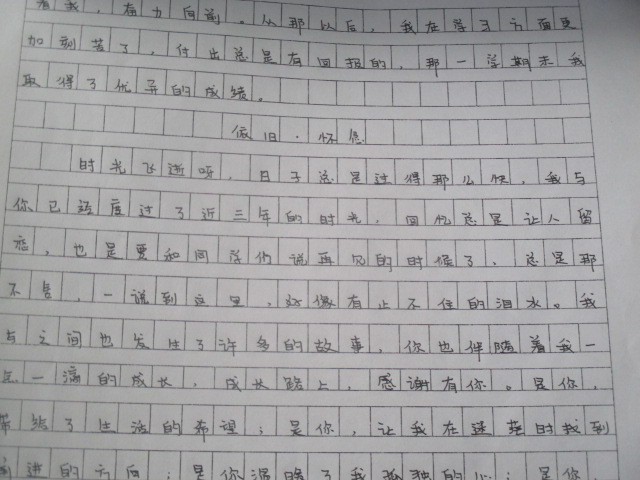 着我，奋力向前。从那以后，我在学习方面更
加刻苦了，付出总是有回报的，那一学期末我
取得了优异的成绩。
依旧·怀念
时光飞逝呀，日子总是过得那么快，我与
你已经度过了近三年的时光，回忆总是让人留
恋，也是要和同学们说再见的时候了，总是那
不舍，一说到这里，好像有止不住的泪水。我
与之间也发生了许多的故事，你也伴随着我一
点一滴的成长，成长路上，感谢有你。是你，
带给了生活的希望；是你，让我在迷茫时找到
前进的方向；是你温暖了我孤独的心；是你，